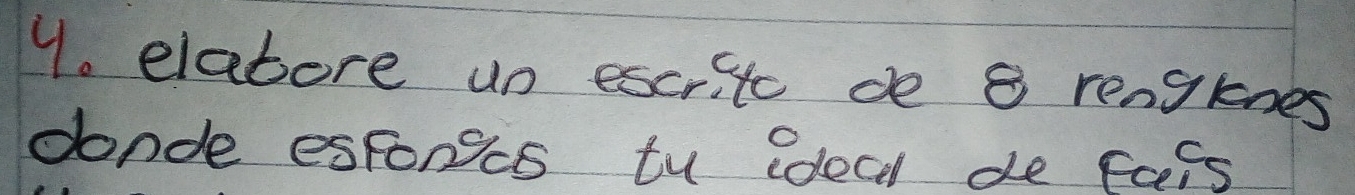 4. elabore un escrito de 8 renglones
donde espongas tu ideal de país